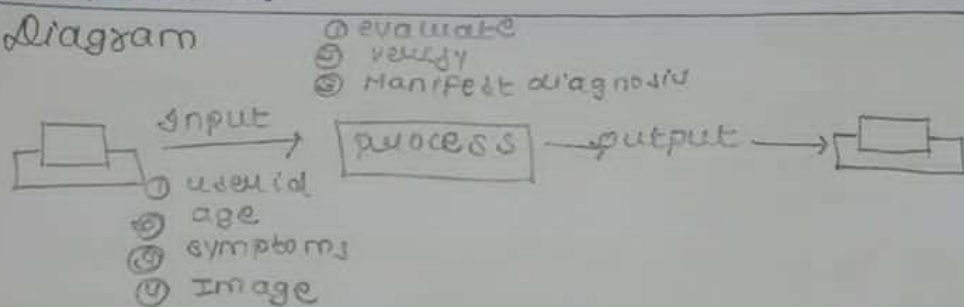 Diagram
① evaluate
② verify
③ Manifest diagnosis
Input
process
output
① userid
② age
③ symptoms
④ Image